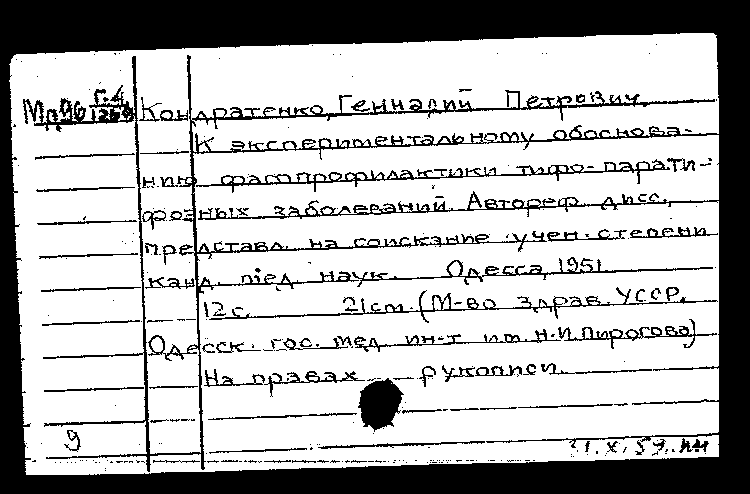 Г.4
Мд96 Кондратенко, Геннадий Петрович.
К экспериментальному обоснова-
нию фагопрофилактики тифо-парати-
фозных заболеваний. Автореф. дисс.,
представл. на соискание учен. степени
канд. мед. наук. Одесса, 1951.
12 с. 21 см. (М-во здрав. УССР.
Одесск. гос. мед. ин-т им. Н.И. Пирогова)
На правах рукописи.
9
X. 59.